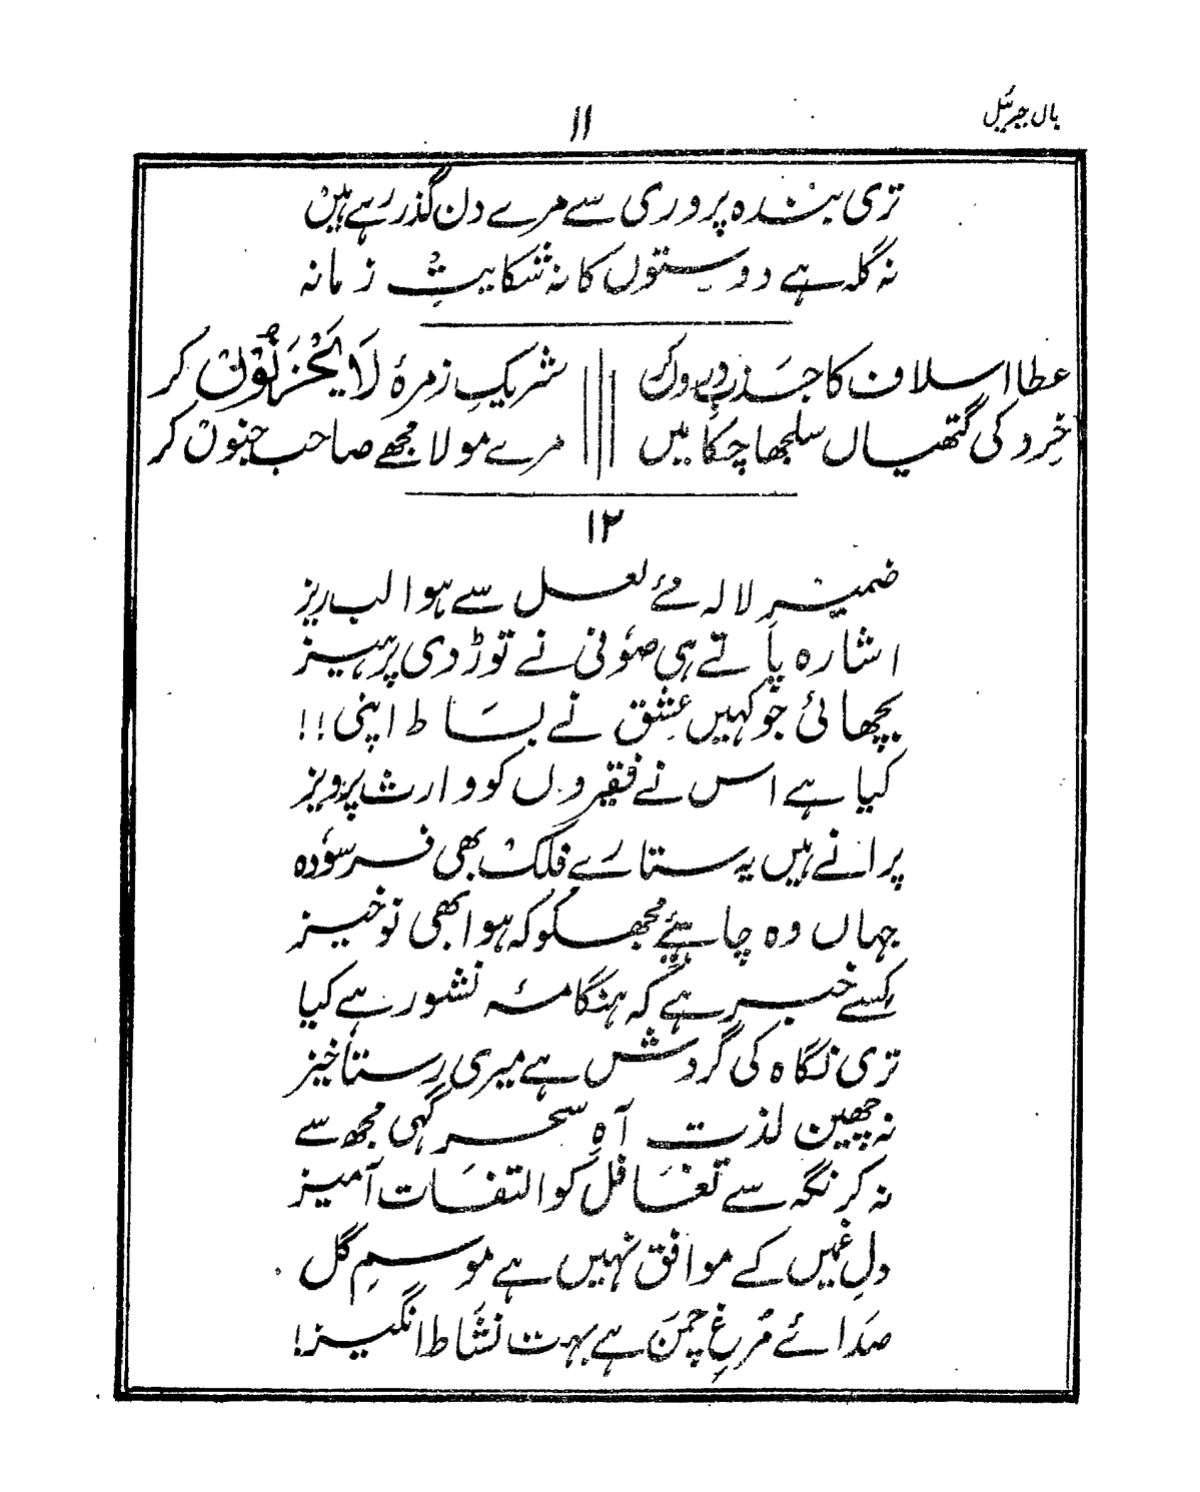 بال جبرئیل
۱۱
تری بندہ پروری سے مرے دن گذر رہے ہیں
نہ گلہ ہے دوستوں کا نہ شکایتِ زمانہ
عطا اسلاف کا جذبِ دروں کر شریکِ زمرۂ لَا یَحْزَنُوْنَ کر
خِرد کی گتھیاں سلجھا چکا میں مرے مولا مجھے صاحب جنوں کر
۱۲
ضمیرِ لالہ مئے لعل سے ہوا لب ریز
اشارہ پاتے ہی صُوفی نے توڑ دی پرہیز
بچھائی جو کہیں عِشق نے بسَاط اپنی!!
کیا ہے اس نے فقیروں کو وارث پرویز
پرانے ہیں یہ ستارے فلک بھی فرسوُدہ
جہاں وہ چاہیئے مجھکو کہ ہو ابھی نوخیز
کِسے خبر ہے کہ ہنگامۂ نشور ہے کیا
تری نگاہ کی گردش ہے میری رستاخیز
نہ چھین لذت آہِ سحر گہی مجھ سے
نہ کر نگہ سے تغَافل کو التفَات آمیز
دلِ غمیں کے موافق نہیں ہے موسمِ گل
صَدائے مُرغِ چمَن ہے بہت نشَاط انگیز!